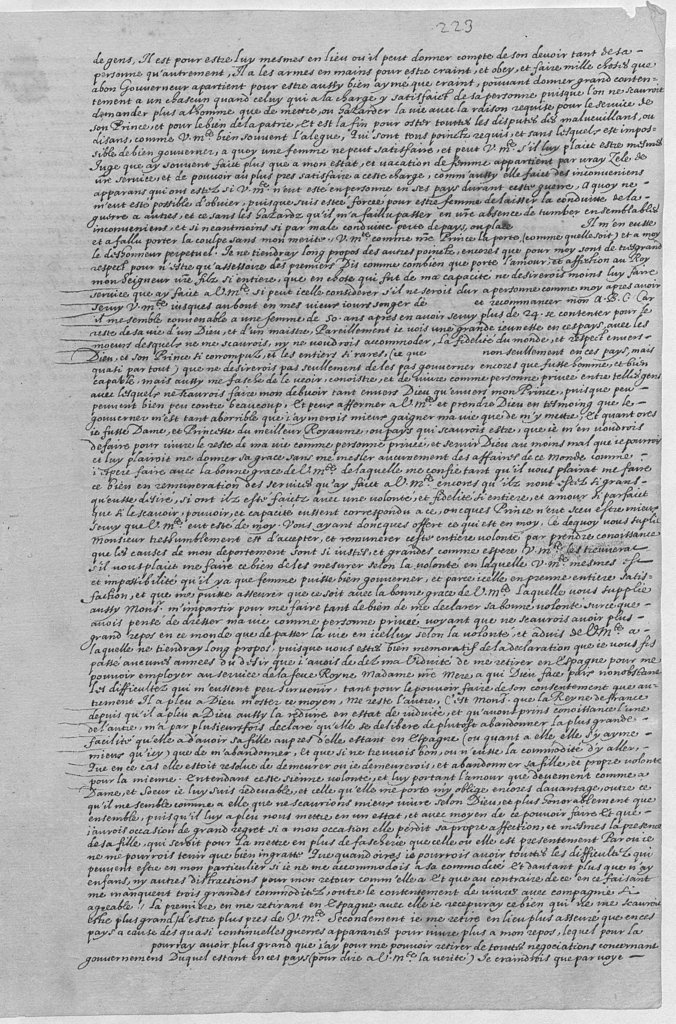 223
de gens, Il est pour estre luy mesmes en lieu ou il peut donner compte de son devoir tant de sa
personne qu'autrement, Il a les armes en mains pour estre craint, et obey, et faire mille choses que
a bon Gouverneur apartient pour estre aussy bien aymé que craint, pouvant donner grand conten-
tement a un chascun quand celuy qui a la charge y satisfaict de sa personne, puisque l'on ne scauroit
demander plus a l'homme que de mettre, ou hazarder la vie avec la raison requise pour le service de
son Prince, et pour le bien de la patrie, Et est la fin pour oster toutes les disputes des malveuillans, ou
disans, comme V. M.té bien souvent l'alegue, Qui sont tous poincts requis, et sans lesquels est impos-
sible de bien gouverner, a quoy une femme ne peut satisfaire, et peut V. M.té s'il luy plaist estre mesmes
Juge que ay souvent faict plus que a mon estat, et vacation de femme appartient par vray zele de
vre service, et de pouvoir au plus pres satisfaire a ceste charge, comm' aussy elle faict des inconveniens
apparans qui ons estez si V. M.té n'eut esté en personne en ses pays durant ceste guerre, a quoy ne
m'eut esté possible d'obvier, puisque suis esté forcée pour estre femme de laisser la conduite de la
guerre a autres, et ce sans les hazardz qu'il m'a fallu passer en vre absence de tumber en semblables
inconveniens, et si neantmoins si par male conduite perte de pays, ou place Il m'en eusse
et a fallu porter la coulpe sans mon merite, V. M.té comme nre Prince la perte, (comme quelle soit) et a moy
le deshonneur perpetuel. Je ne tiendray long propos des autres poincts, encores que pour moy sont de tres grand
respect, pour n'estre qu'assessoire des premiers Dis comme combien que porte l'amour, et affection au Roy
mon Seigneur vre filz si entiere, que en chose qui fut de ma capacité ne desirerois moins luy faire
service que ay faict a V. M.té si peut icelle considerer s'il ne seroit dur a personne comme moy apres avoir
servy V. M.té jusques au bout en mes vieux jours songer de et recommancer mon A. B. C. Car
il me semble convenable a une femme de 50 ans apres en avoir servy plus de 24. se contenter pour le
reste de sa vie d'un Dieu, et d'un maistre, Pareillement je vois une grande jeunesse en ces pays avec les
moeurs desquels ne me scaurois, ny ne voudrois accommoder, La fidelité du monde, et respect envers
Dieu, et son Prince si corrompuz, et les entiers si rares, (ce que non seullement en ces pays, mais
quasi par tout) que ne desirerois pas seullement de les pas gouverner encores que fusse homme, et bien
capable, mais aussy me fasche de le veoir, conoistre, et de vivre comme personne privée entre telles gens
avec lesquels ne scaurois faire mon debvoir tant envers Dieu qu'envers mon Prince, puisque peu
peuvent bien peu contre beaucoup, Et peux affermer a V. M.té et prendre Dieu en tesmoing que le
gouverner m'est tant aborrible que j'aymerois mieux gaigner ma vie que de m'y mettre, Et quant ores
je fusse Dame, et Princesse du meilleur Royaume, ou pays qui scauroit estre, que je m'en voudrois
defaire pour vivre le reste de ma vie comme personne privée, et servir Dieu au moins mal que je pourroy
et luy plairoit me donner sa grace sans me mesler aucunement des affaires de ce monde comme
j'espere faire avec la bonne grace de V. M.té de laquelle me confie tant qu'il vous plairat me faire
ce bien en remuneration des services qu'ay faict a V. M.té encores qu'ilz n'ont estez si grans
qu'eusse desiré, si ont ilz estez faictz avec une volonté, et fidelité si entiere, et amour si parfaict
que si le scavoir, pouvoir, et capacité eussent correspondu a ce, oncques Prince n'eut sceu estre mieux
servy que V. M.té eut esté de moy. Vous ayant doncques offert ce qui est en moy. Ce dequoy vous suplie
Monsieur treshumblement est d'accepter, et remunerer ceste entiere volonté par prendre conoissance
que les causes de mon deportement sont si justes, et grandes comme espere V. M.té les treuverat
s'il vous plaist me faire ce bien de les mesurer selon la volonté en laquelle V. M.té mesmes est
et impossibilité qu'il y a que femme puisse bien gouverner, et par ce icelle en prenne entiere satis-
faction, et que me puisse asseurer que ce soit avec la bonne grace de V. M.té laquelle vous supplie
aussy Mons.r m'impartir pour me faire tant de bien de me declarer sa bonne volonté sur ce que
avois pensé de dresser ma vie comme personne privée voyant que ne scaurois avoir plus
grand repos en ce monde que de passer la vie en icelluy selon la volonté, et advis de V. M.té a
laquelle ne tiendray long propos, puisque vous estes bien memoratif de la declaration que je vous fis
passé aucunes années du desir que j'avois de dez ma Viduité de me retirer en Espagne pour me
pouvoir employer au service de la feue Royne Madame nre Mere a qui Dieu face paix nonobstant
les difficultez qui m'eussent peu survenir, tant pour le pouvoir faire de son consentement que au-
trement Il a pleu a Dieu m'oster ce moyen, Me reste l'autre, C'est Mons.r que la Reyne de france
depuis qu'il a pleu a Dieu aussy la reduire en estat de viduité, et qu'avons prins conoissance l'une
de l'autre, m'a par plusieurs fois declaré qu'elle se delibere de plustost abandonner la plus grande
facilité qu'elle a d'avoir sa fille aupres d'elle estant en Espagne (ou quant a elle elle s'y ayme
mieux qu'icy) que de m'abandonner, et que si ne treuvois bon, ou n'eusse la commodité d'y aller,
Que en ce cas elle estoit resolue de demeurer ou je demeurerois, et abandonner sa fille, et propre volonté
pour la mienne. Entendant ceste sienne volonté, et luy portant l'amour que devement comme a
Dame, et Soeur je luy suis redevable, et celle qu'elle me porte my oblige encores davantage, outre ce
qu'il me semble comme a elle que ne scaurions mieux vivre selon Dieu, et plus honorablement que
ensemble, puisqu'il luy a pleu nous mettre en un estat, et avec moyen de ce pouvoir faire Et que
j'aurois occasion de grand regret si a mon occasion elle perdit sa propre affection, et mesmes la presence
de sa fille, qui serbit pour la mettre en plus de fascherie que celle ou elle est presentement Par ou je
ne me pourrois tenir que bien ingratte Que quand oires je pourrois avoir toutes les difficultez qui
peuvent estre en mon particulier si je ne me accommodois a sa commodité Et d'autant plus que n'ay
enfans, ny autres distractions pour mon retour comme elle a Et que au contraire de ce en ce faisant
me manquent trois grandes commoditez, outre le contentement de vivre avec compagnie si
agreable, La premiere en me retirant en Espagne avec elle je recepvray ce bien qui ne me scauroit
estre plus grand d'estre plus pres de V. M.té Secondement je me retire en lieu plus asseuré que en ces
pays a cause des quasi continuelles guerres apparants pour vivre plus a mon repos, lequel pour la
pourray avoir plus grand que j'ay pour me pouvoir retirer de toutes negociations concernant
gouvernemens Duquel estant en ces pays (pour dire a V. M.té la verité) Je craindrois que par voye